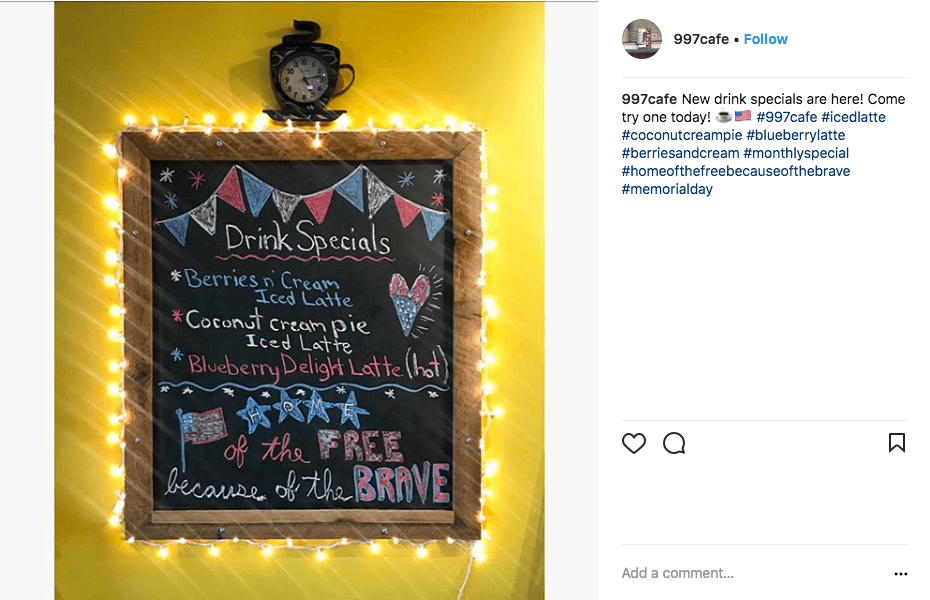 Drink Specials
* Berries n' Cream
Iced Latte
* Coconut cream pie
Iced Latte
* Blueberry Delight Latte (hot)
HOME
of the FREE
because of the BRAVE
997cafe • Follow
997cafe New drink specials are here! Come
try one today! ☕🇺🇸 #997cafe #icedlatte
#coconutcreampie #blueberrylatte
#berriesandcream #monthlyspecial
#homeofthefreebecauseofthebrave
#memorialday
Add a comment...